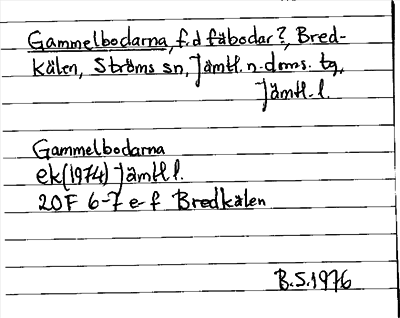 Gammelbodarna, f.d fäbodar?, Bred-
kälen, Ströms sn, Jämtl. n. doms. tg,
Jämtl. l.
Gammelbodarna
ek (1974) Jämtl l.
20F 6-7 e-f Bredkälen
B.S. 1976